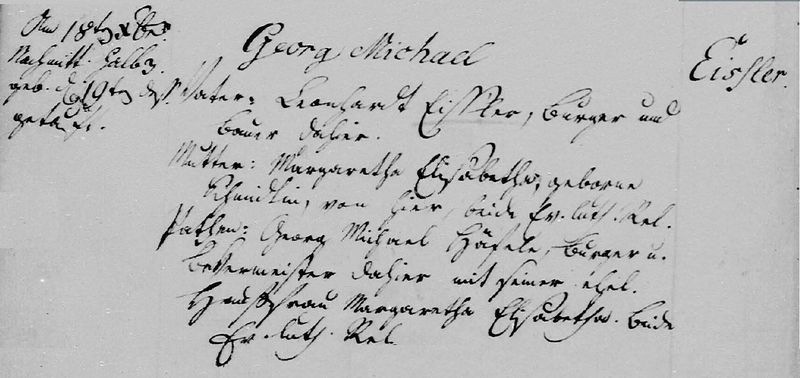 Am 18ten Xber
Nachmitt. halb 3.
geb. d. 19ten dess.
getauft.
Georg Michael
Eissler.
Vater: Leonhardt Eissler, burger und
bauer dahier.
Mutter: Margaretha Elisabetha, geborne
Schmidtin, von hier, beide Ev. luth. Rel.
Pathen: Georg Michael Häfele, burger u.
dahier mit seiner ehel.
Hausfrau Margaretha Elisabetha. beide
Ev. luth. Rel.